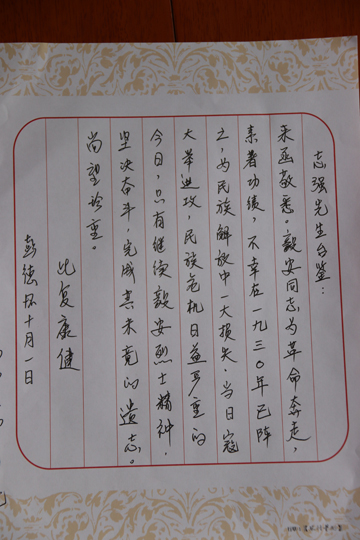 志强先生台鉴：
来函敬悉。毅安同志为革命奔走，
素著功绩，不幸在一九三〇年已阵
亡，为民族解放中一大损失。当日寇
大举进攻，民族危机日益严重的
今日，只有继续毅安烈士精神，
坚决奋斗，完成其未竟的遗志。
尚望珍重。
此复康健
彭德怀十月一日